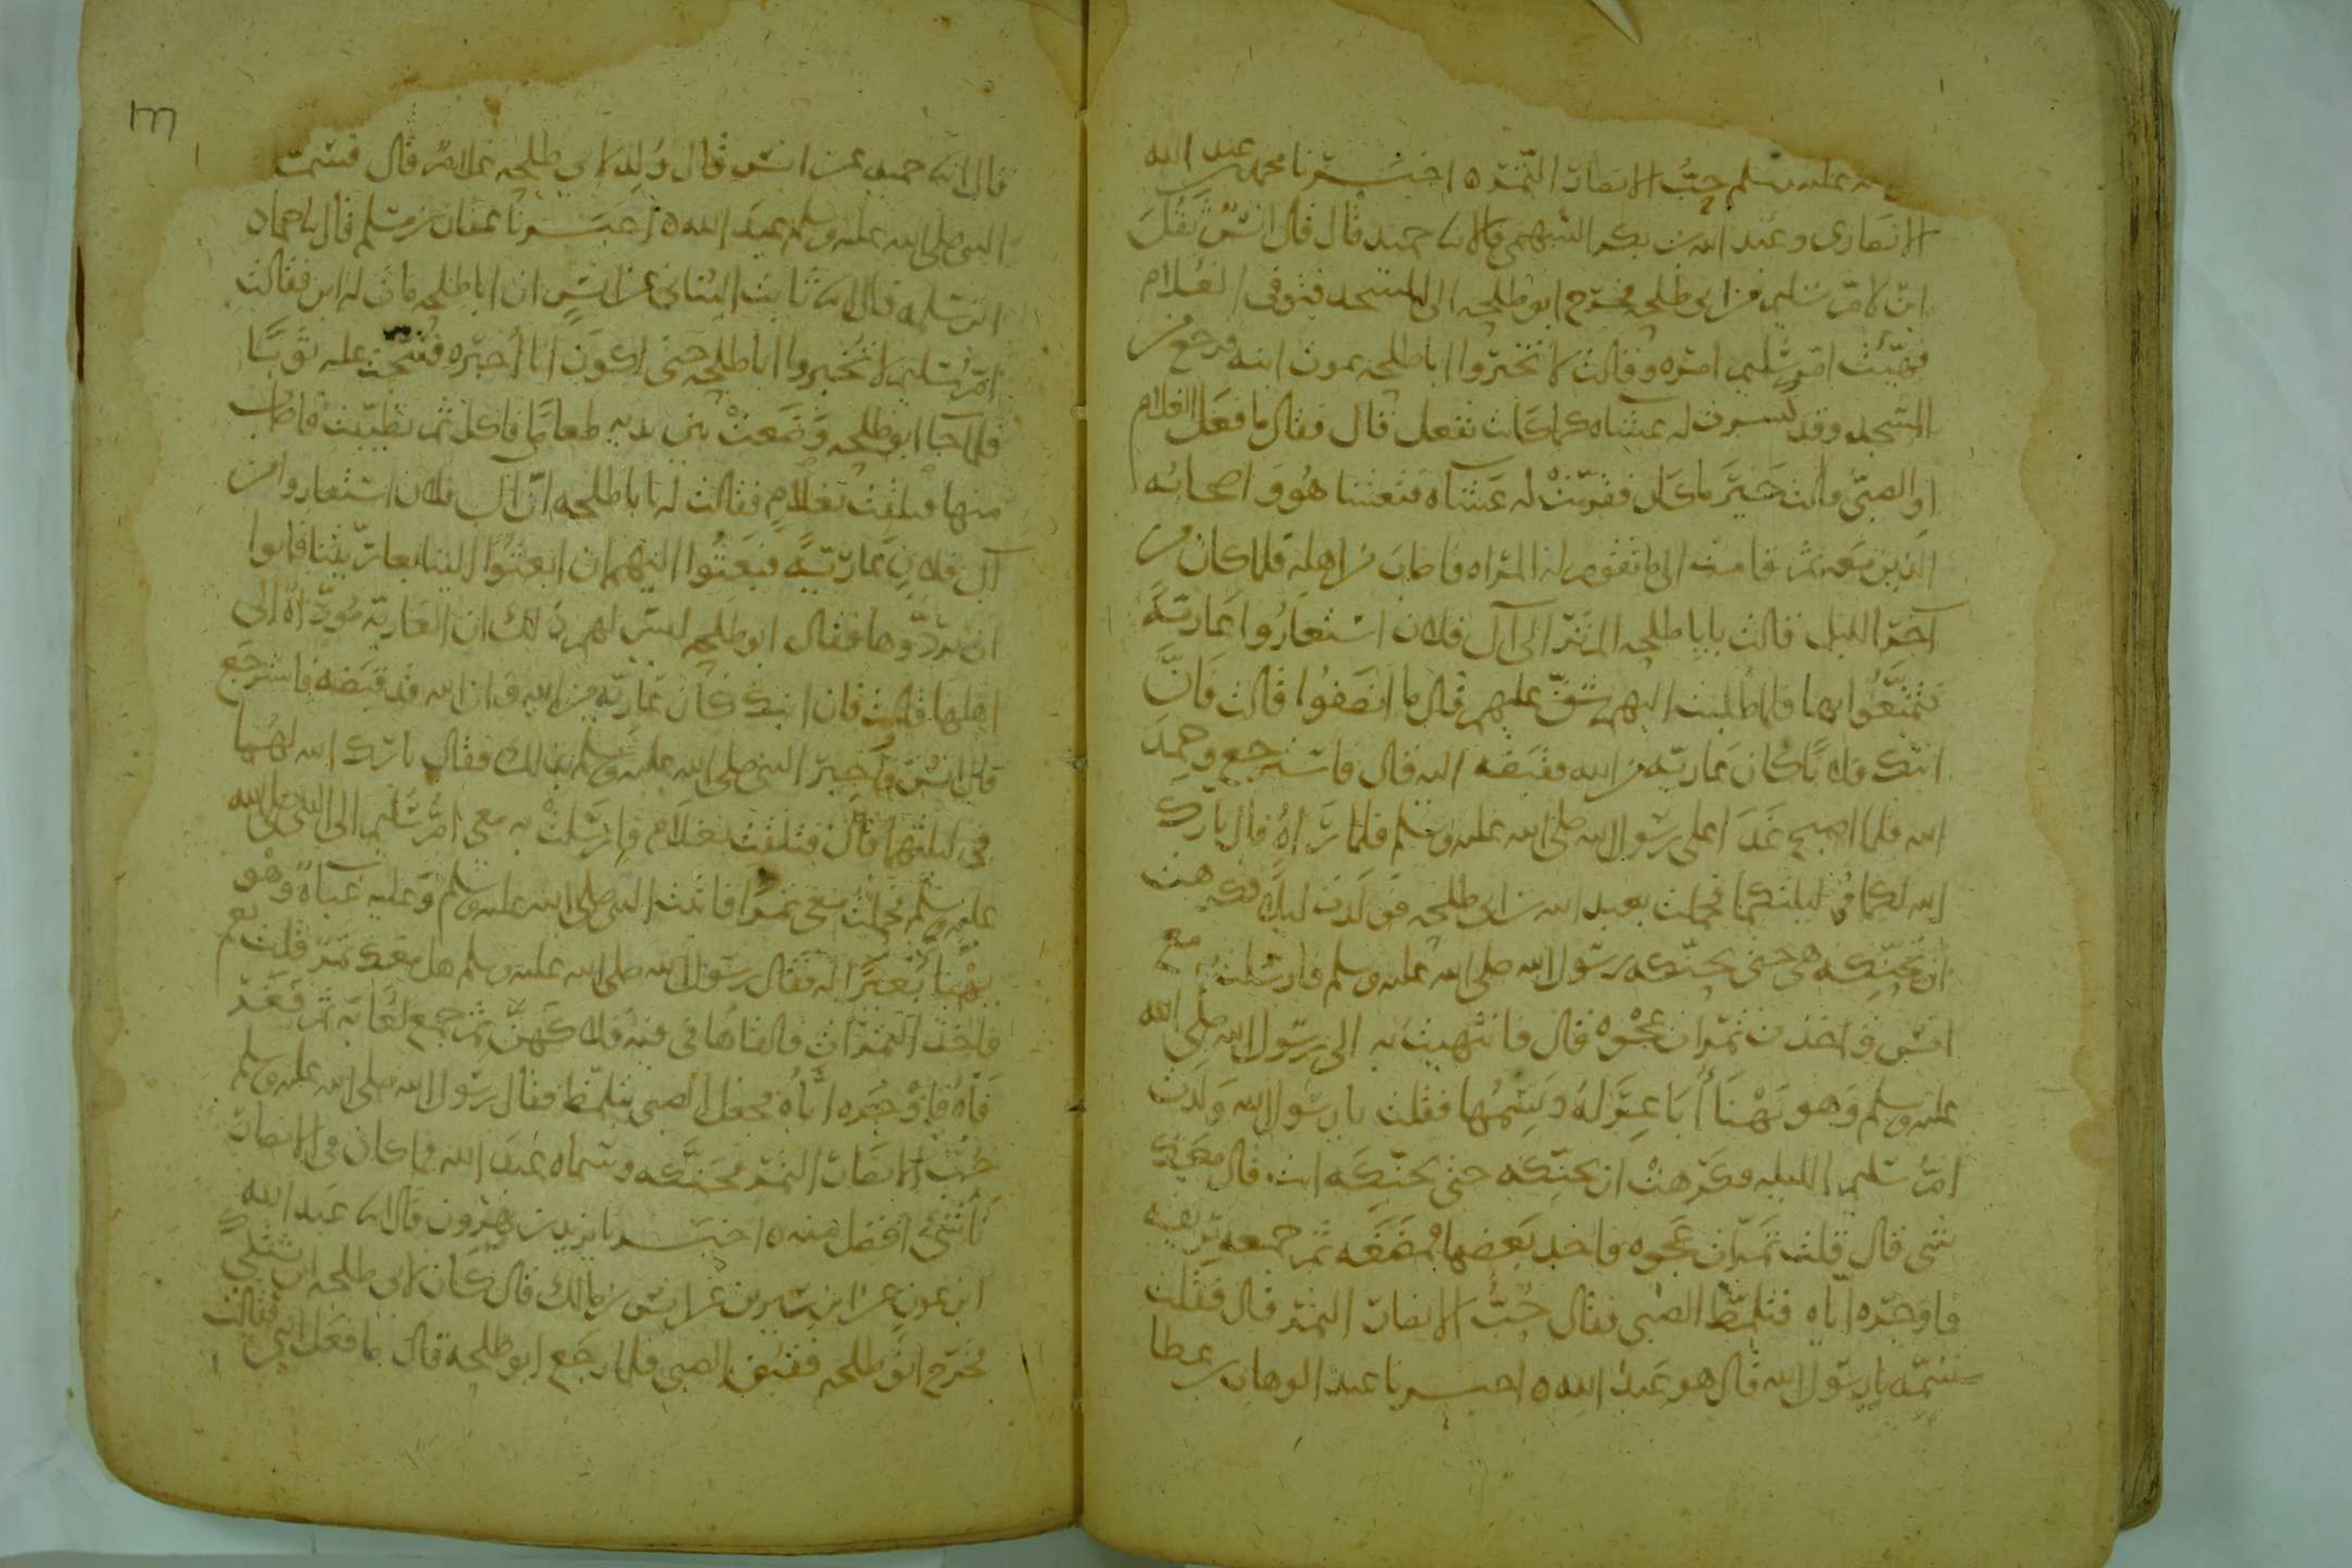 عليه وسلم حب الانصار التمر ٥ اخبرنا محمد بن عبد الله
الانصارى وعبد الله بن بكر السهمى قالا نا حميد قال قال انس ثقل
ابن لام سليم من ابى طلحه فخرج ابو طلحه الى المسجد فتوفى الغلام
فهيّئت ام سليم امره وقالت لا تخبروا ابا طلحه بموت ابنه فرجع من
المسجد وقد يسرت له عشاه كما كانت تفعل قال فقال ما فعل الغلام
او الصبىّ قالت خير ما كان فقرّبت له عشاه فتعشا هو واصحابه
الذين معه ثم قامت الى ما تقوم له المراه فاصاب من اهله فلما كان من
آخر الليل قالت يابا طلحه الم تر الى آل فلان استعاروا عارية
فتمتّعوا بها فلما طلبت اليهم شقّ عليهم قال ما انصفوا قالت فانّ
ابنك فلانا كان عاريّه من الله فقبضه اليه قال فاسترجع وحمد
الله فلما اصبح غدا على رسول الله صلى الله عليه وسلم فلما رآه قال بارك
الله لكما فى ليلتكما فحملت بعبد الله بن ابى طلحه فولدت ليلا فكرهت
ان تحنّكه هى حتى يحنّكه رسول الله صلى الله عليه وسلم فارسلت به مع
انس واخذت تمرات عجوه قال فانتهيت به الى رسول الله صلى الله
عليه وسلم وهو يهنأ اباعر له ويسمها فقلت يا رسول الله ولدت
امّ سليم الليله فكرهت ان تحنّكه حتى تحنّكه انت قال معك
شى قال قلت تمرات عجوه فاخذ بعضها فمضغه ثم جمعه بريقه
فاوجره ايّاه فتلمّظ الصبى فقال حبّ الانصار التمر قال فقلت
سمّه يا رسول الله قال هو عبد الله ٥ اخبرنا عبد الوهاب بن عطا
١٣٣
قال انا حميد عن انس قال ولد لابى طلحه غلام قال فسمت
النبى صلى الله عليه وسلم عبد الله ٥ اخبرنا عفان بن مسلم قال نا حماد
ابن سلمه قال انا ثابت البنانى عن انس ان ابا طلحه مات له ابن فقالت
ام سليم لا تخبروا ابا طلحه حتى اكون انا اخبره فسجّت عليه ثوبا
فلما جا ابو طلحه وضعت بين يديه طعاما فاكل ثم تطيّبت فاصاب
منها فعلقت بغلام فقالت له يابا طلحه انّ آل فلان استعاروا من
آل فلان عاريّة فبعثوا اليهم ان ابعثوا الينا بعاريتنا فابوا
ان يردّوها فقال ابو طلحه ليس لهم ذلك ان العاريّة مودّاة الى
اهلها قالت فان ابنك كان عاريّه من الله وان الله قد قبضه فاسترجع
قال انس فاخبر النبى صلى الله عليه وسلم بذلك فقال بارك الله لهما
فى ليلتهما قال فعلقت بغلام فارسلت به معى ام سليم الى النبى صلى الله
عليه وسلم فحملت معى تمرا فاتيت النبى صلى الله عليه وسلم وعليه عباة وهو
يهنأ بعيرًا له فقال رسول الله صلى الله عليه وسلم هل معك تمر قلت نعم
فاخذ التمرات فالقاها فى فيه فلاكهنّ ثم جمع لعابه ثم فغر
فاه فاوجره ايّاه فجعل الصبى يتلمّظ فقال رسول الله صلى الله عليه وسلم
حُبّ الانصار التمر فحنّكه وسماه عبد الله فما كان فى الانصار
ناشئ افضل منه ٥ اخبرنا يزيد بن هرون قال انا عبد الله
ابن عون عن ابن سيرين عن انس بن مالك قال كان لابى طلحه ابن يشتكى
فخرج ابو طلحه فقبض الصبى فلما رجع ابو طلحه قال ما فعل ابنى فقالت